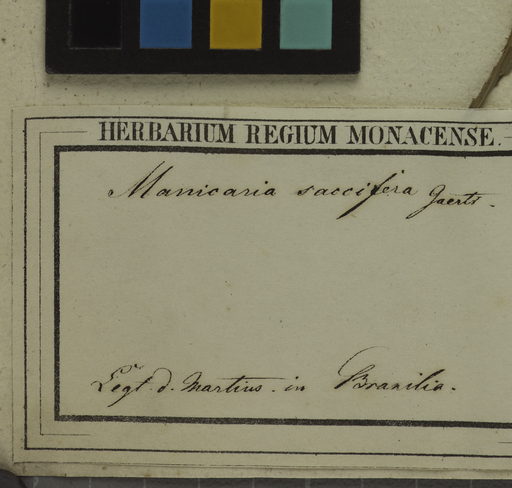 HERBARIUM REGIUM MONACENSE.
Manicaria saccifera Gaertn.
Legt. d. Martius. in Brasilia.